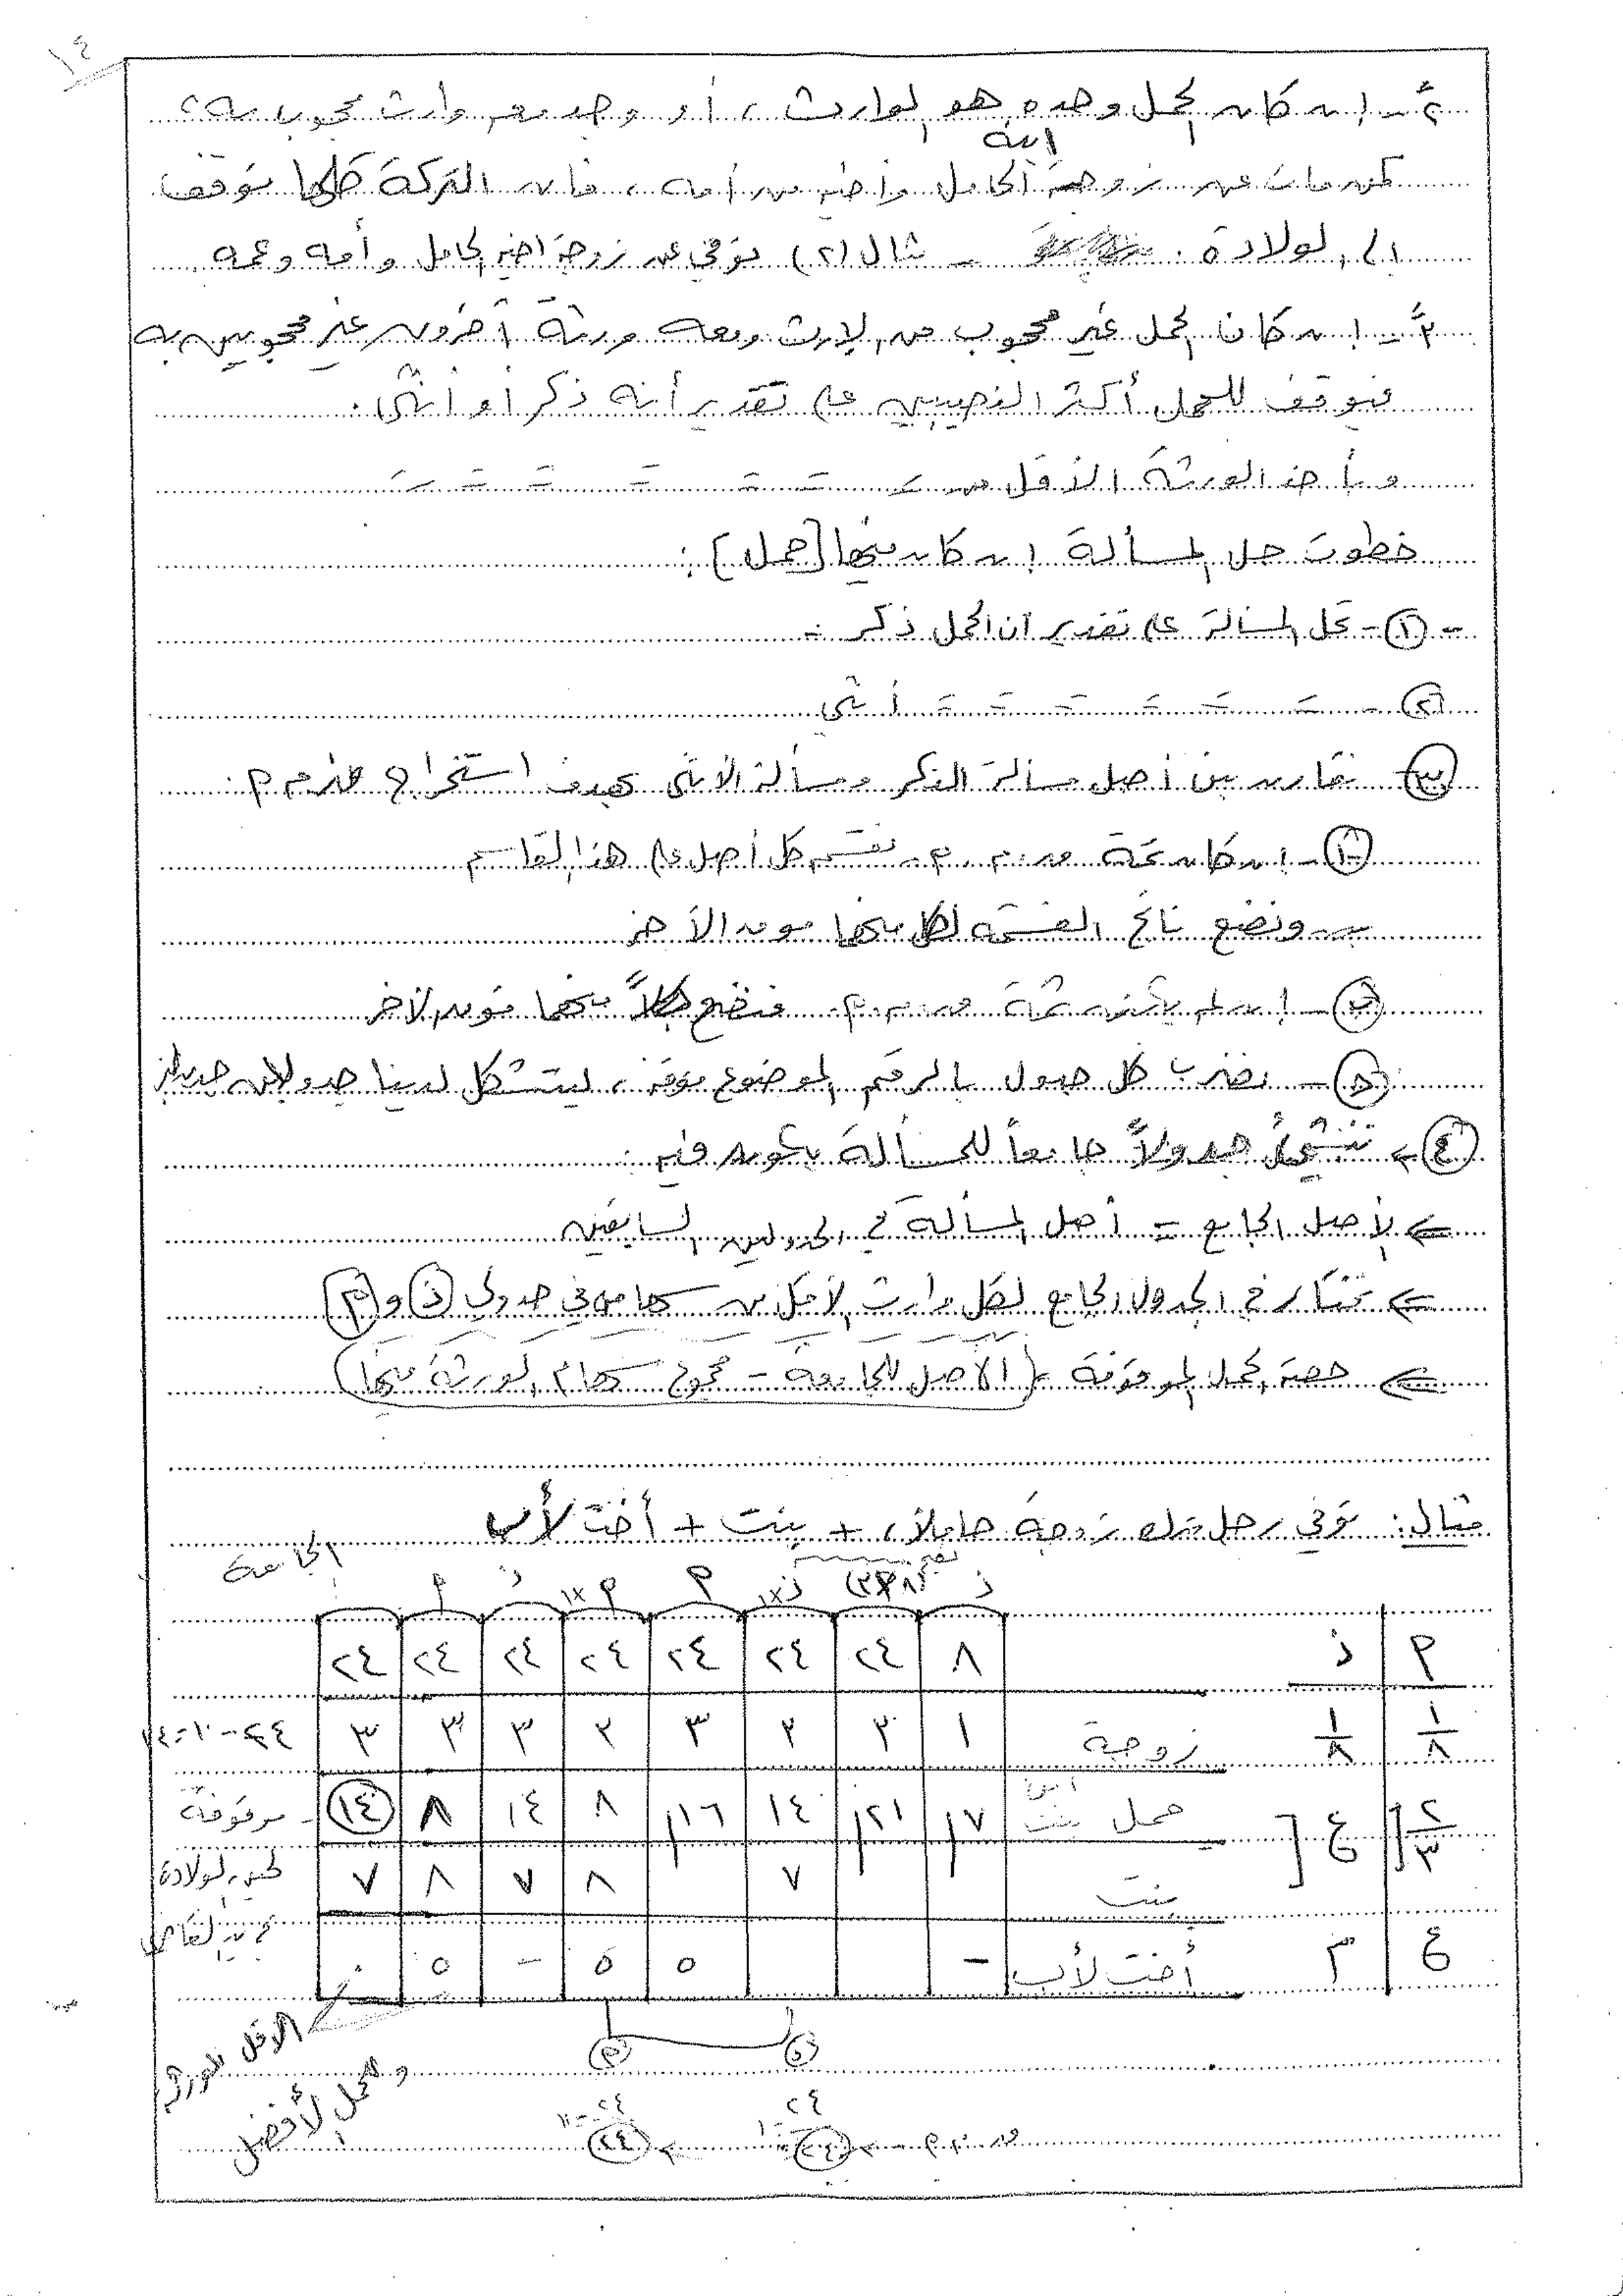 ١٤
٢ً- إن كان الحمل وحده هو الوارث، أو وجد معه وارث محجوب به؛
كمن مات عن زوجة ابنه الحامل وأخيه من أمه، فإن التركة كلها توقف
إلى الولادة. - مثال (٢) توفي عن زوجة أخيه الحامل وأمه وعمه
٣ً- إن كان الحمل غير محجوب من الإرث ومعه ورثة آخرون غير محجوبين به
فيوقف للحمل أكثر النصيبين على تقدير أنه ذكر أو أنثى.
ويأخذ الورثة الأقل من = = = = = = =
خطوت حل المسألة إن كان فيها [حمل]:
- ①- تحل المسألة على تقدير أن الحمل ذكر -
②- = = = = = = أنثى
③- نقارن بين أصل مسألة الذكر ومسألة الأنثى بهدف استخراج ق.م.م.
①- إن كان ثمة ق.م.م. نقسم كل أصل على هذا القاسم
- ونضع ناتج القسمة لكل منهما فوق الآخر
- إن لم يكن ثمة ق.م.م. فنضع كلاً منهما فوق الآخر
- نضرب كل جدول بالرقم الموضوع فوقه، ليتشكل لدينا جدولان جديدان
④- ننشئ جدولاً جامعاً للمسألة يكون فيه:
⇐ الأصل الجامع = أصل المسألة في الجدولين السابقين
⇐ نختار في الجدول الجامع لكل وارث الأقل من سهامه في جدولي ذ و م
⇐ حصة الحمل الموقوفة = (الأصل للجامعة - مجموع سهام الورثة فيها)
مثال: توفي رجل ترك زوجة حاملاً، + بنت + أخت لأب
الجامعة م ذ م ×١ م ذ ×١ (٣×٨) ذ
م ذ ٨ ٢٤ ٢٤ ٢٤ ٢٤ ٢٤ ٢٤ ٢٤
١/٨ ١/٨ زوجة ١ ٣ ٣ ٣ ٣ ٣ ٣ ٣ ٢٤-١٠=١٤
٢/٣ ع حمل ابن بنت ٧ ٢١ ١٤ ١٦ ٨ ١٤ ٨ ١٤ موقوفة
بنت ٧ ٨ ٧ ٨ ٧ لحين الولادة
ع م أخت لأب - ٥ ٥ - ٥ ٠
ذ م
الأقل للورثة
و للحمل الأفضل
ق.م.م ٢٤ ٢٤